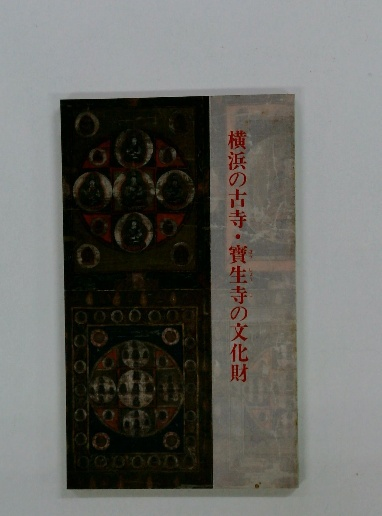 横浜の古寺・寶生寺の文化財